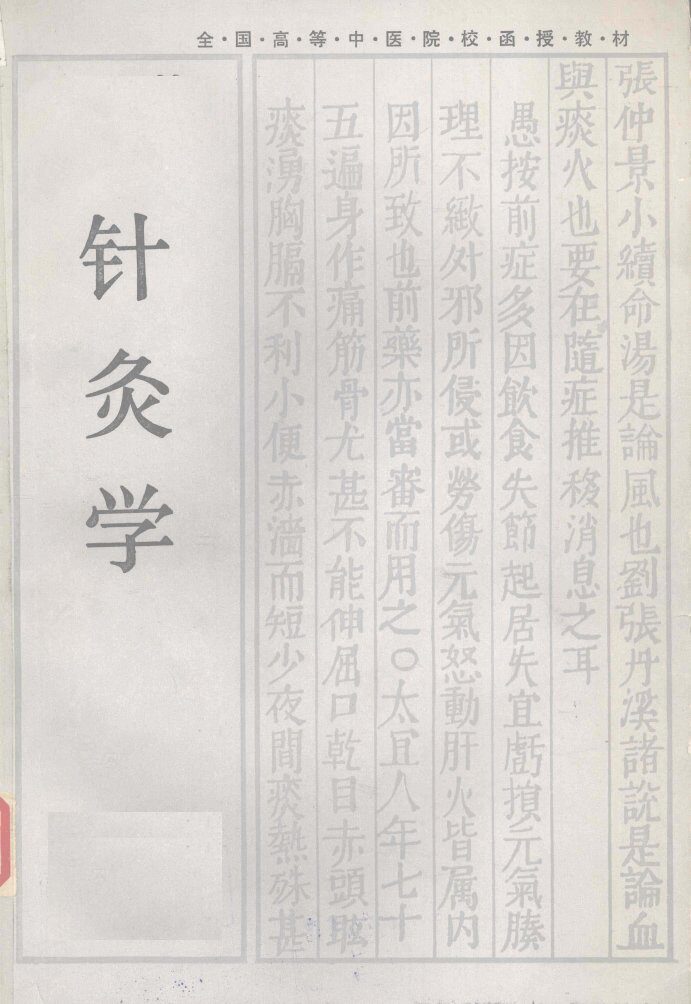 全·国·高·等·中·医·院·校·函·授·教·材
针灸学
張仲景小續命湯是論風也劉張丹溪諸說是論血
與痰火也要在隨症推移消息之耳
愚按前症多因飲食失節起居失宜虧損元氣腠
理不緻外邪所侵或勞傷元氣怒動肝火皆属内
因所致也前藥亦當審而用之○太宜人年七十
五遍身作痛筋骨尤甚不能伸屈口乾目赤頭眩
痰湧胸膈不利小便赤濇而短少夜間痰熱殊甚